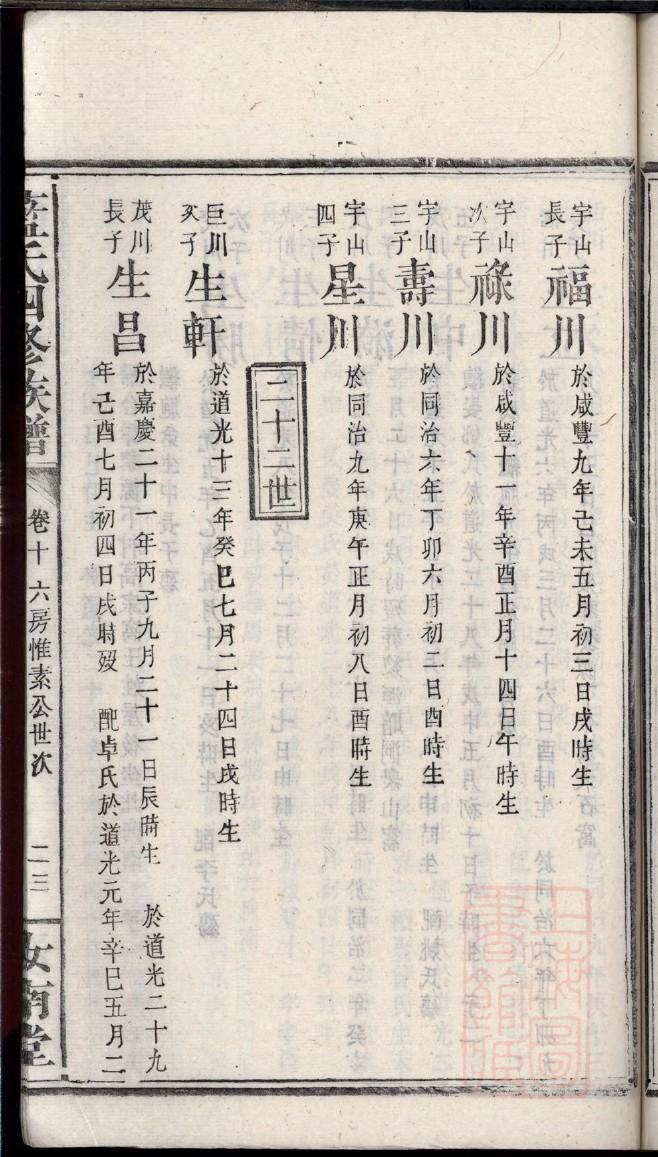 宇山長子福川 於咸豐九年己未五月初三日戌時生
宇山次子祿川 於咸豐十一年辛酉正月十四日午時生
宇山三子壽川 於同治六年丁卯六月初二日酉時生
宇山四子星川 於同治九年庚午正月初八日酉時生
二十二世
巨川次子生軒 於道光十三年癸巳七月二十四日戌時生
茂川長子生昌 於嘉慶二十一年丙子九月二十一日辰時生 於道光二十九
年己酉七月初四日戌時歿 配卓氏於道光元年辛巳五月二
氏四修族譜 卷十 六房惟素公世次 二三 汝南堂